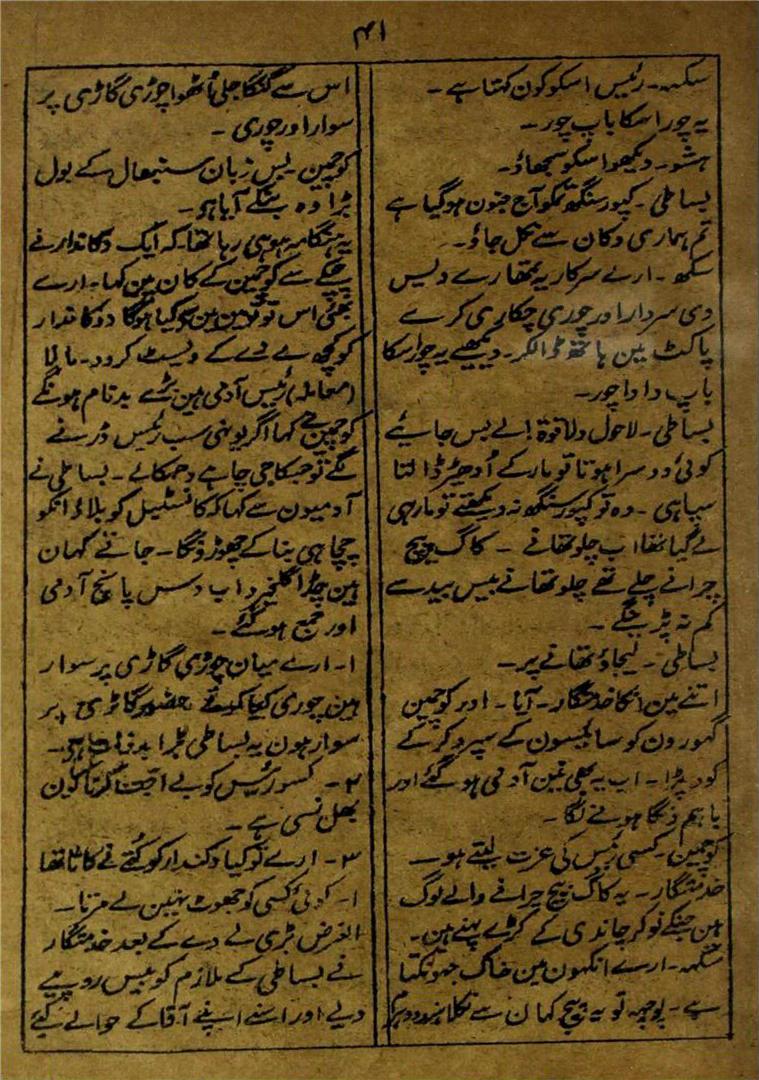 ۴۱
سکھ۔ رئیس اسکو کون کہتا ہے۔
یہ چور اسکا باپ چور۔
ہشو۔ دیکھو اسکو سمجھاؤ۔
بساطی۔ کپور سنگھ تمکو آج جنون ہو گیا ہے
تم ہماری دکان سے نکل جاؤ۔
سکھ۔ ارے سرکار یہ تمھارے دیس
دی سردار اور چوری چکاری کرے
پاکٹ مین ہاتھ ڈالکر۔ دیکھیے یہ چور اسکا
باپ دادا چور۔
بساطی۔ لاحول ولا قوۃ! لے بس جایئے
کوئی دوسرا ہوتا تو مار کے اُدھیڑ ڈالتا
سپاہی۔ وہ تو کپور سنگھ نہ دیکھتے تو مار ہی
لے گیا تھا اب چلو تھانے۔ کاگ پیچ
چرانے چلے تھے چلو تھانے بیس بید سے
کم نہ پڑینگے۔
بساطی۔ لیجاؤ تھانے پر۔
اتنے مین انکا خدمتگار۔ آیا۔ اور کوچمین
گھورون کو سائیسون کے سپرد کر کے
کود پڑا۔ اب یہ بھی تین آدمی ہو گئے اور
باہم دنگا ہونے لگا۔
کوچمین۔ کسی رئیس کی عزت لیتے ہو۔
خدمتگار۔ یہ کاگ پیچ چرانے والے لوگ
ہین جنکے نوکر چاندی کے کڑے پہنے ہین۔
سکھ۔ ارے انکھون مین خاک جھونکتا
ہے۔ پوچھ تو یہ پیچ کہان سے نکلا
اس سے گنگا جلی اُٹھوا چوڑی گاڑی پر
سوار اور چوری۔
کوچمین بس زبان سنبھال کے بول
بڑا وہ بنکے آیا ہو۔
یہ ہنگامہ ہو ہی رہا تھا۔ کہ ایک دکاندار نے
چپکے سے کوچمین کے کان مین کہا۔ ارے
بھئی اس تو تو مین مین سے کیا ہوگا دوکاندار
کو کچھ دے لے کے ویسٹ کرو۔ مالا
(معاملہ) رئیس آدمی ہین بڑے بدنام ہونگے
کوچمین نے کہا اگر یونہی سب رئیس ڈرنے
لگے تو جسکا جی چاہے دھمکا لے۔ بساطی نے
آدمیون سے کہا کہ کانسٹیل کو بلاؤ انکو
چچا ہی بنا کے چھوڑونگا۔ جاتے کہان
ہین اب دس پانچ آدمی
اور جمع ہو گئے۔
۱۔ ارے میان چوڑی گاڑی پر سوار
ہین چوری کیا کرینگے حضور گاڑی پر
سوار ہون یہ بساطی بڑا بدذات ہی۔
۲۔ کسو رئیس کو بے اجت کرنا کون
بھل نسی ہے۔
۳۔ ارے تو کیا دکندار کو کُتے نے کاٹا تھا
۱۔ کوئی کسی کو جھوٹ نہین لے مرتا۔
الغرض بڑی لے دے کے بعد خدمتگار
نے بساطی کے ملازم کو بیس روپیے
دیے اور اسنے اپنے آقا کے حوالے کیے